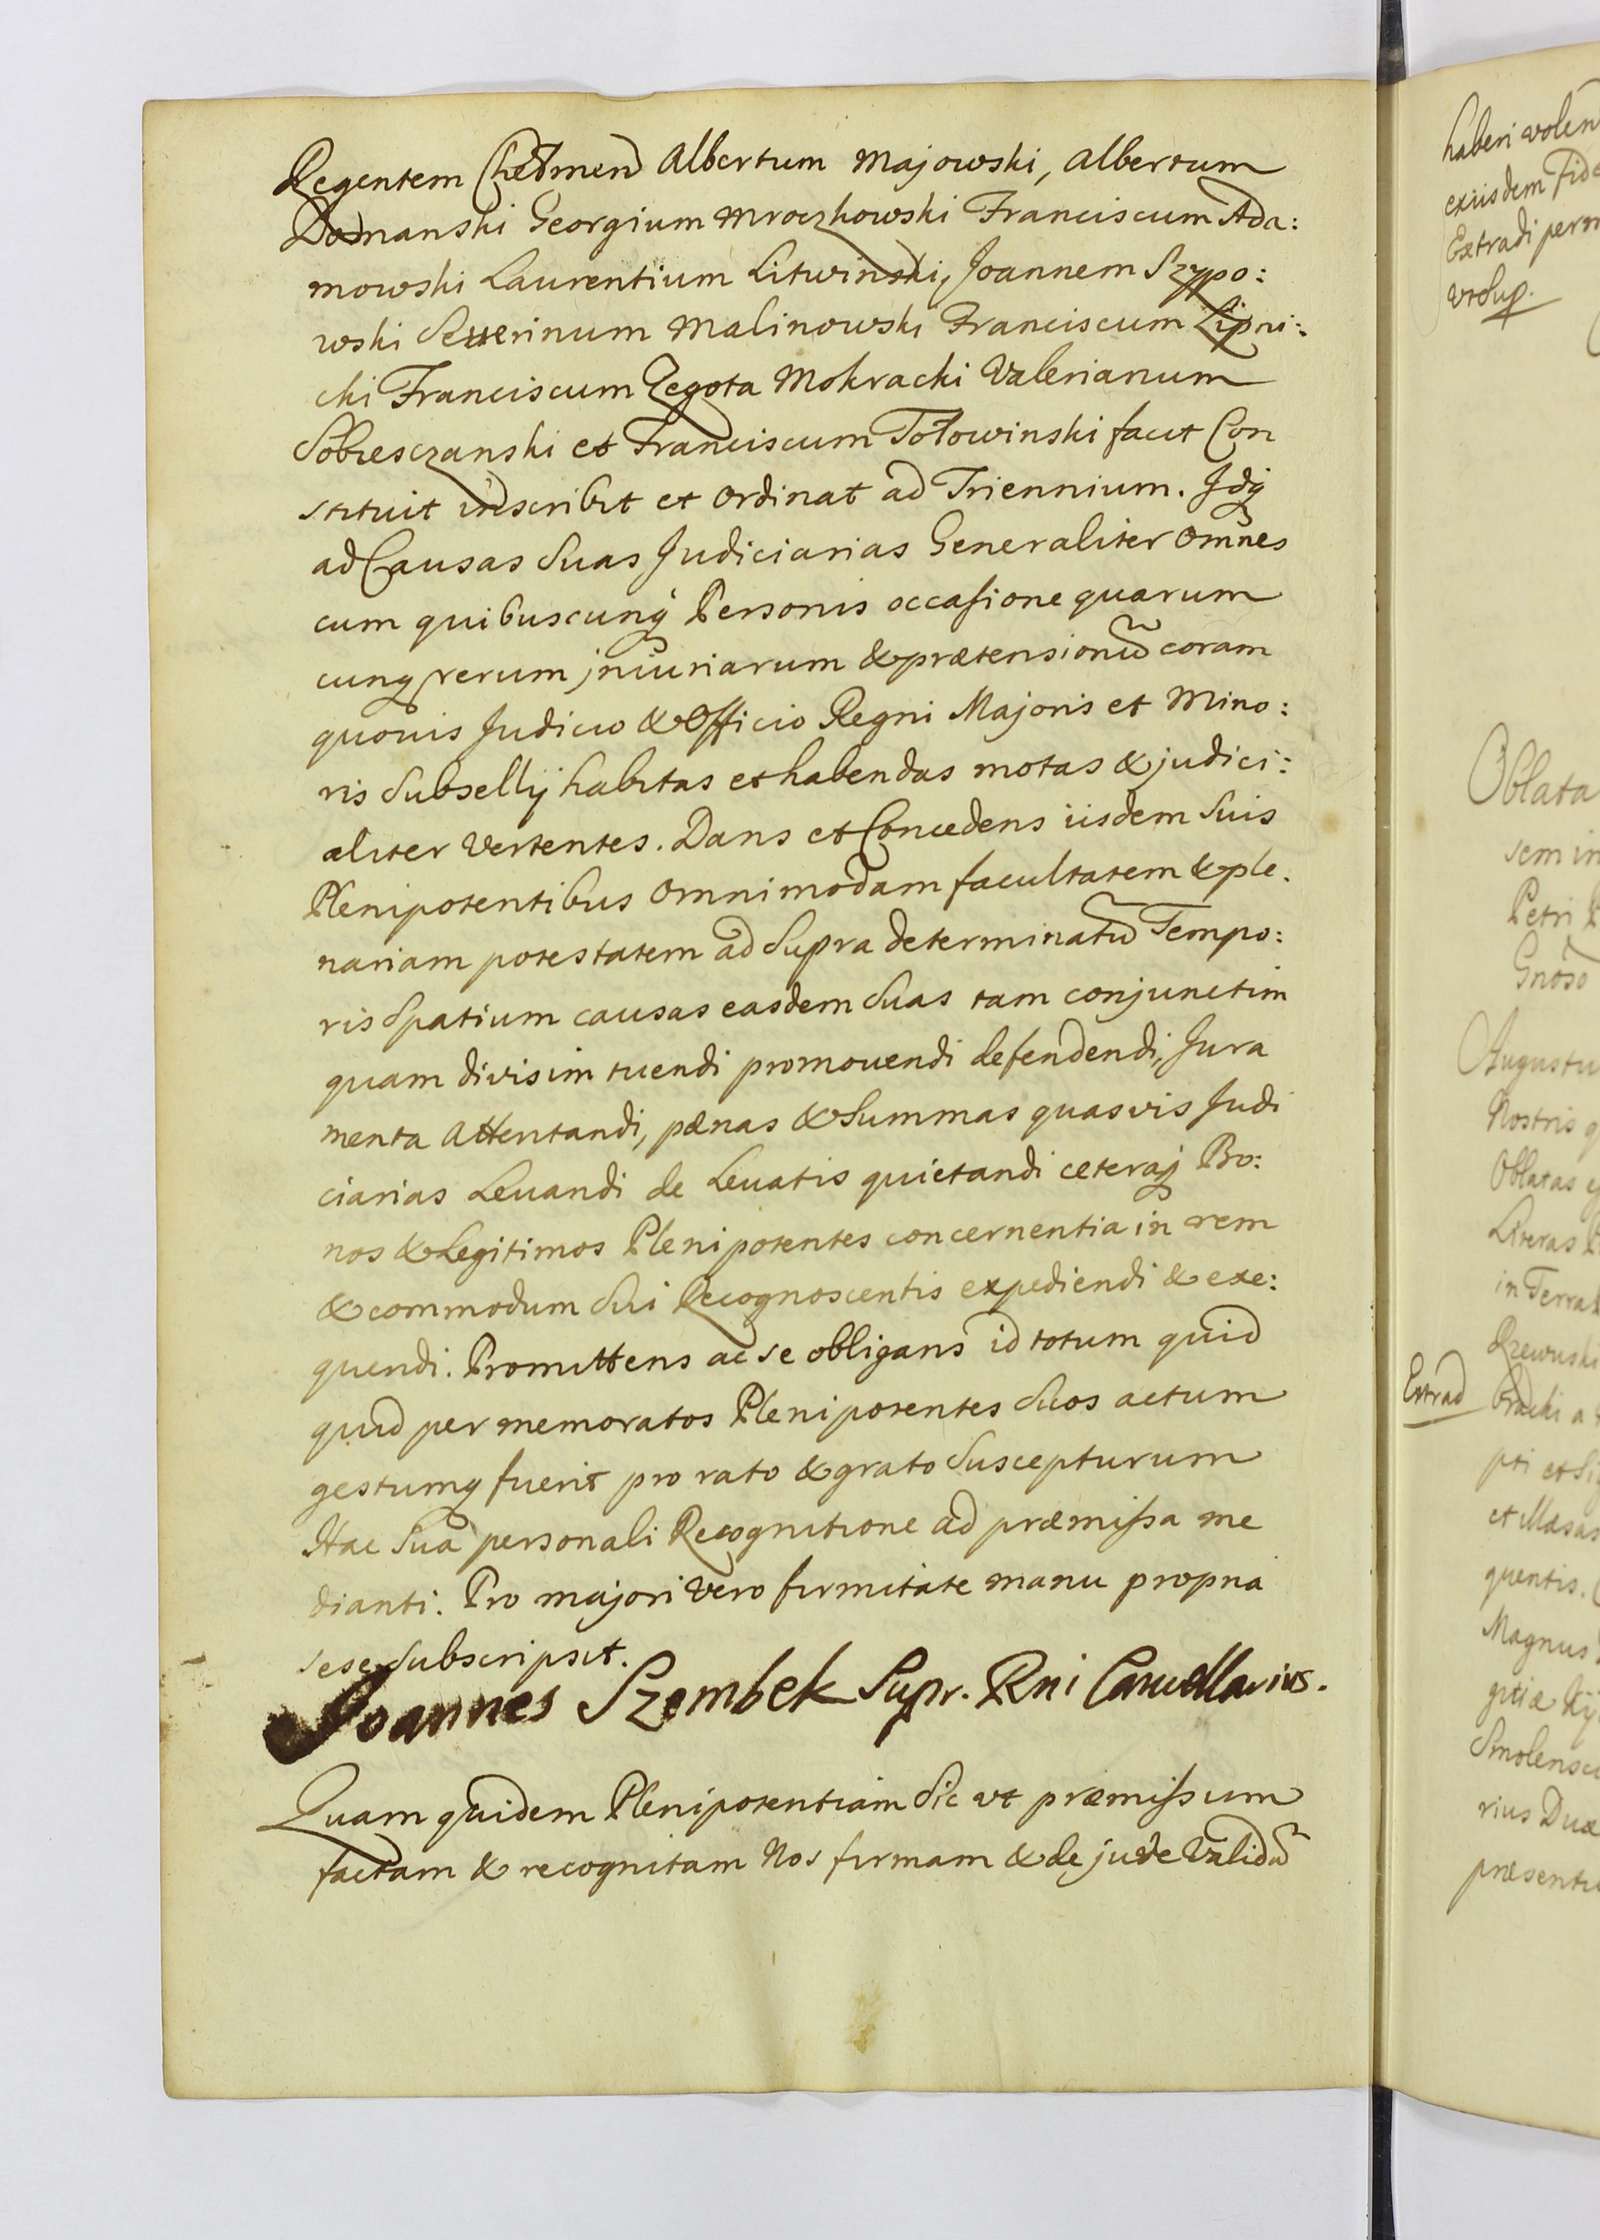 Regentem Chełmen Albertum Majowski, Albertum
Domanski Georgium Mroczkowski Franciscum Ada:
mowski Laurentium Litwinski, Joannem Szypo:
wski Seuerinum Malinowski Franciscum Lipni:
cki Franciscum Zegota Mokracki Valerianum
Sobiesczanski et Franciscum Tołowinski facit Con
stituit inscribit et Ordinat ad Triennium. Idq
ad Causas Suas Judiciarias Generaliter omnes
cum quibuscunq Personis occasione quarum
cunq rerum iniuriarum & prætensionū coram
quouis Judicio & Officio Regni Majoris et Mino:
ris Subsellij habitas et habendas motas & judici:
aliter Vertentes. Dans et Concedens iisdem Suis
Plenipotentibus omnimodam facultatem & ple.
nariam potestatem ad Supra determinatū Tempo:
ris Spatium causas easdem Suas tam conjunctim
quam divisim tuendi promouendi defendendi, Jura
menta Attentandi, pænas & Summas quasvis Judi
ciarias Levandi de Levatis quietandi ceteraq Bo:
nos & Legitimos Plenipotentes concernentia in rem
& commodum Sui Recognoscentis expediendi & exe:
quendi. Promittens ac se obligans id totum quid
quid per memoratos Plenipotentes Suos actum
gestumq fuerit pro rato & grato Suscepturum
Hac Sua personali Recognitione ad præmissa me
dianti. Pro majori Vero firmitate manu propria
sese Subscripsit.
Joannes Szembek Supr. Rni Cancellarius.
Quam quidem Plenipotentiam Sic ut præmissum
factam & recognitam Nos firmam & de jure Validā
haberi volen
eiusdem Fide
Extradi perm
Oblata
sem in
Petri
Gnoso
Augustu
Nostris
Oblatas
Literas
in Terra
Rzewuski
Extrad
pti et Si
et Massas
quentis.
Magnus
Smolensc
rius Duc
præsenti